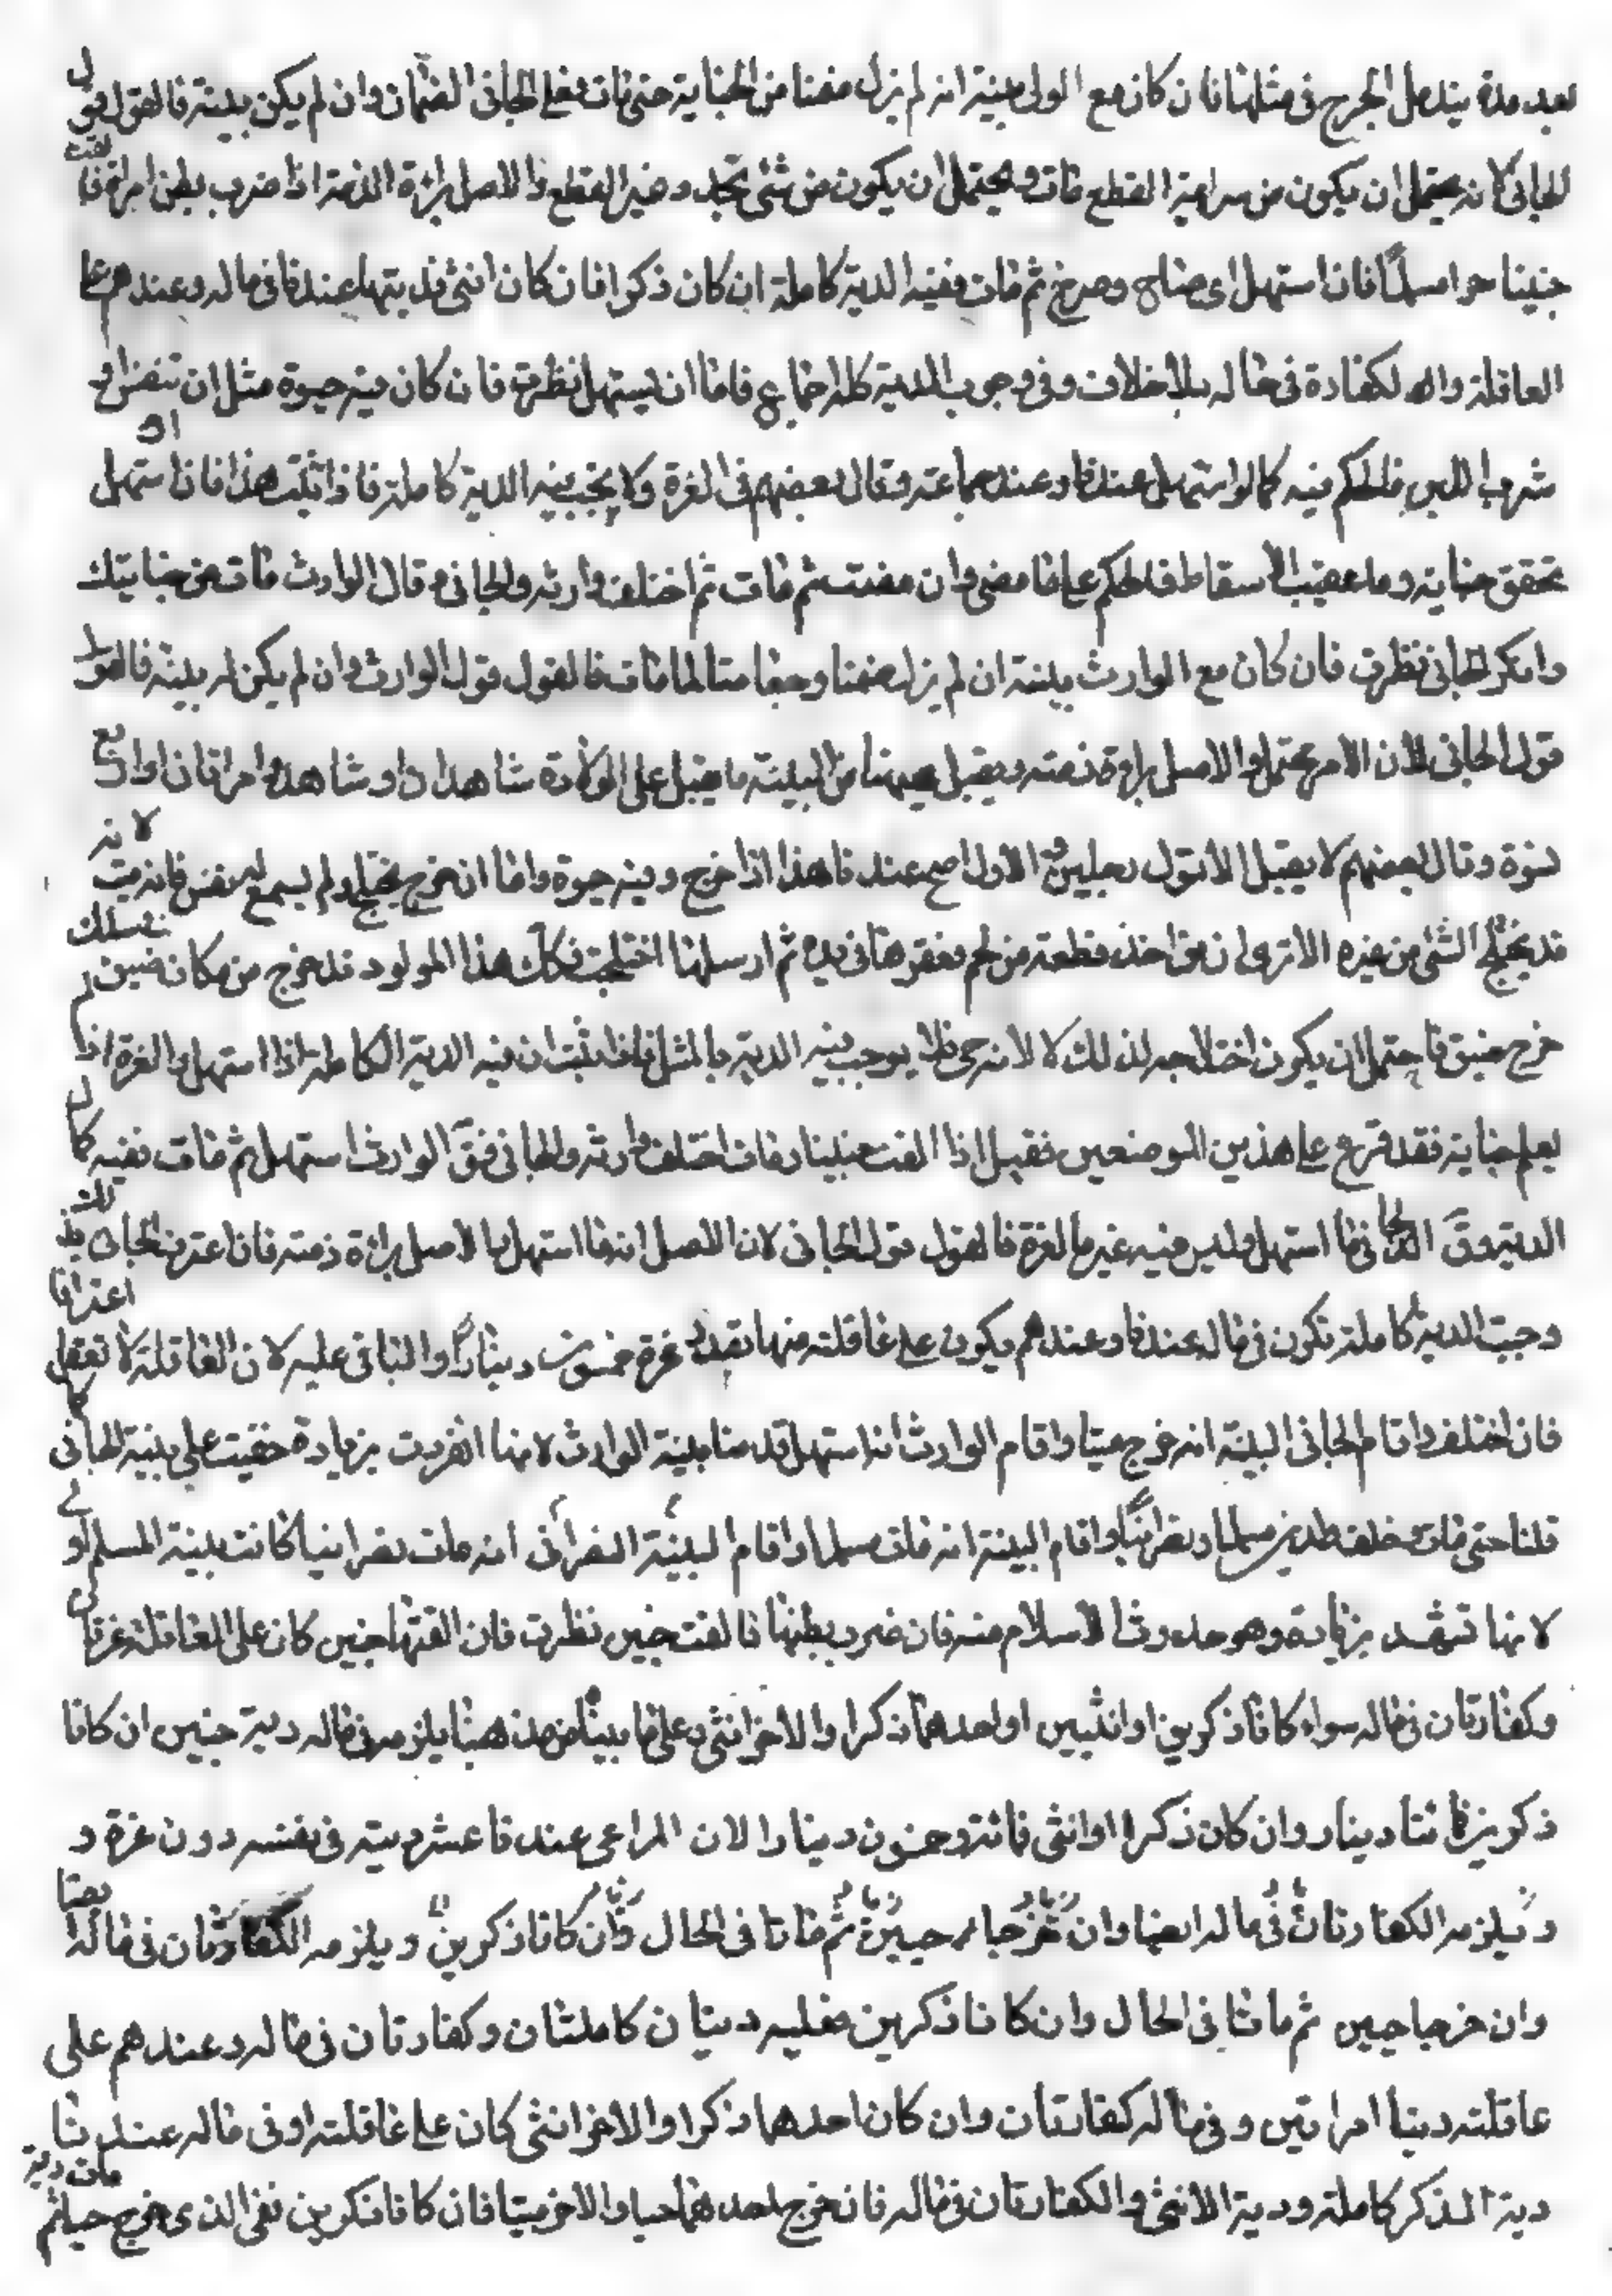 بعد مدة يندمل الجرح في مثلها فان كان مع الولى بينة انه لم يزل ضمنا من الجناية حتى مات فعلى الجانى الضمان وان لم يكن بينة فالقول قول
الجانى لانه يحتمل ان يكون من سراية القطع مات ويحتمل ان يكون من شئ تجدد وغير القطع والاصل براءة الذمة اذا ضرب بطن امراة فالقت
جنينا حرا مسلما فان استهل اى صاح وصرخ ثم مات ففيه الدية كاملة ان كان ذكرا فان كان انثى فديتها عندنا فى ماله وعندهم على
العاقلة والكفارة فى ماله بلا خلاف وفى وجوب الدية كله اجماع فاما ان لم يستهل نظرت فان كان فيه حيوة مثل ان تنفس او
شرب اللبن فالحكم فيه كما لو استهل عندنا وعند جماعة وقال بعضهم فيه الغرة ولا يجب فيه الدية كاملة فاذا ثبت هذا فان استهل
تحقق جنايته وما عقيب الاسقاط فالحكم على ما مضى وان مضت ثم مات ثم اختلف وارثه والجانى وقال الوارث مات من جنايتك
وانكر الجانى نظرت فان كان مع الوارث بينة ان لم يزل ضمنا وجعا متالما مات فالقول قول الوارث وان لم يكن له بينة فالقول
قول الجانى لان الامر محتمل والاصل براءة ذمته ويقبل هيهنا من البينة ما يقبل على الولادة شاهدان او شاهد وامراتان او اربع
نسوة وقال بعضهم لا يقبل الا قول رجلين والاول اصح عندنا هذا اذا خرج وفيه حيوة واما ان خرج يختلج ولم يسمع له نفس فانه ميت لانه
قد يختلج الشئ من غيره الا ترى ان من اخذ قطعة من لحم فعقرها فى يده ثم ارسلها اختلجت فكذلك هذا المولود قد خرج من مكان ضيق لم
خرج ضيق فاحتمل ان يكون اختلاجه لذلك لا لانه حى فلا يوجب فيه الدية بالمثل فاذا ثبت ان فيه الدية الكاملة اذا استهل والغرة اذا
يعلم جنايته فقد فرع على هذين الموضعين فقيل اذا القت جنينا ومات اختلف وارثه والجانى فقَ الوارث استهل ثم مات ففيه كمال
الدية وقَ الجانى ما استهل وليس فيه غير الغرة فالقول قول الجانى لان الاصل انه ما استهل والاصل براءة ذمته فان اعترف الجانى بذلك
وجبت الدية كاملة تكون فى ماله عندنا وعندهم ويكون على عاقلته منها بقدر غرة خمسون دينارا والباقى عليه لان العاقلة لا تعقل اعترافا
فان اختلفا واقام الجانى البينة انه خرج ميتا واقام الوارث انه استهل قدمنا بينة الوارث لانها انفردت بزيادة خفيت على بينة الجانى كما
قلنا حتى مات وخلف ولدين مسلما ونصرانيا واقام البينة انه مات مسلما واقام البينة النصرانى انه مات نصرانيا كانت بينة المسلم اولى
لانها تشهد بزيادة وهو حدوث الاسلام منه فان ضرب بطنها فالقت جنين نظرت فان القتهما جنين كان على العاقلة غرتان
وكفارتان فى ماله سواء كانا ذكرين او انثيين او احدهما ذكرا والاخر انثى وعلى ما بينا من مذهبنا يلزمه فى ماله دية جنين ان كانا
ذكرين مائتا دينار وان كان ذكرا او انثى مائة وخمسون دينارا لان المراعى عندنا عشر ديته فى نفسه دون غرة و
ويلزمه الكفارتان فى ماله ايضا وان خرجا حيين ثم ماتا فى الحال وان كانا ذكرين ويلزمه الكفارتان فى ماله ايضا
وان خرجا حيين ثم ماتا فى الحال وان كانا ذكرين فعليه ديتان كاملتان وكفارتان فى ماله وعندهم على
عاقلته ديتا امراتين وفى ماله كفارتان وان كان احدهما ذكرا والاخر انثى كان على عاقلته او فى ماله عندنا
دية الذكر كاملة ودية الانثى والكفارتان فى ماله فان خرج احدهما حيا والاخر ميتا فان كانا ذكرين ففى الذى خرج حيا ثم مات دية